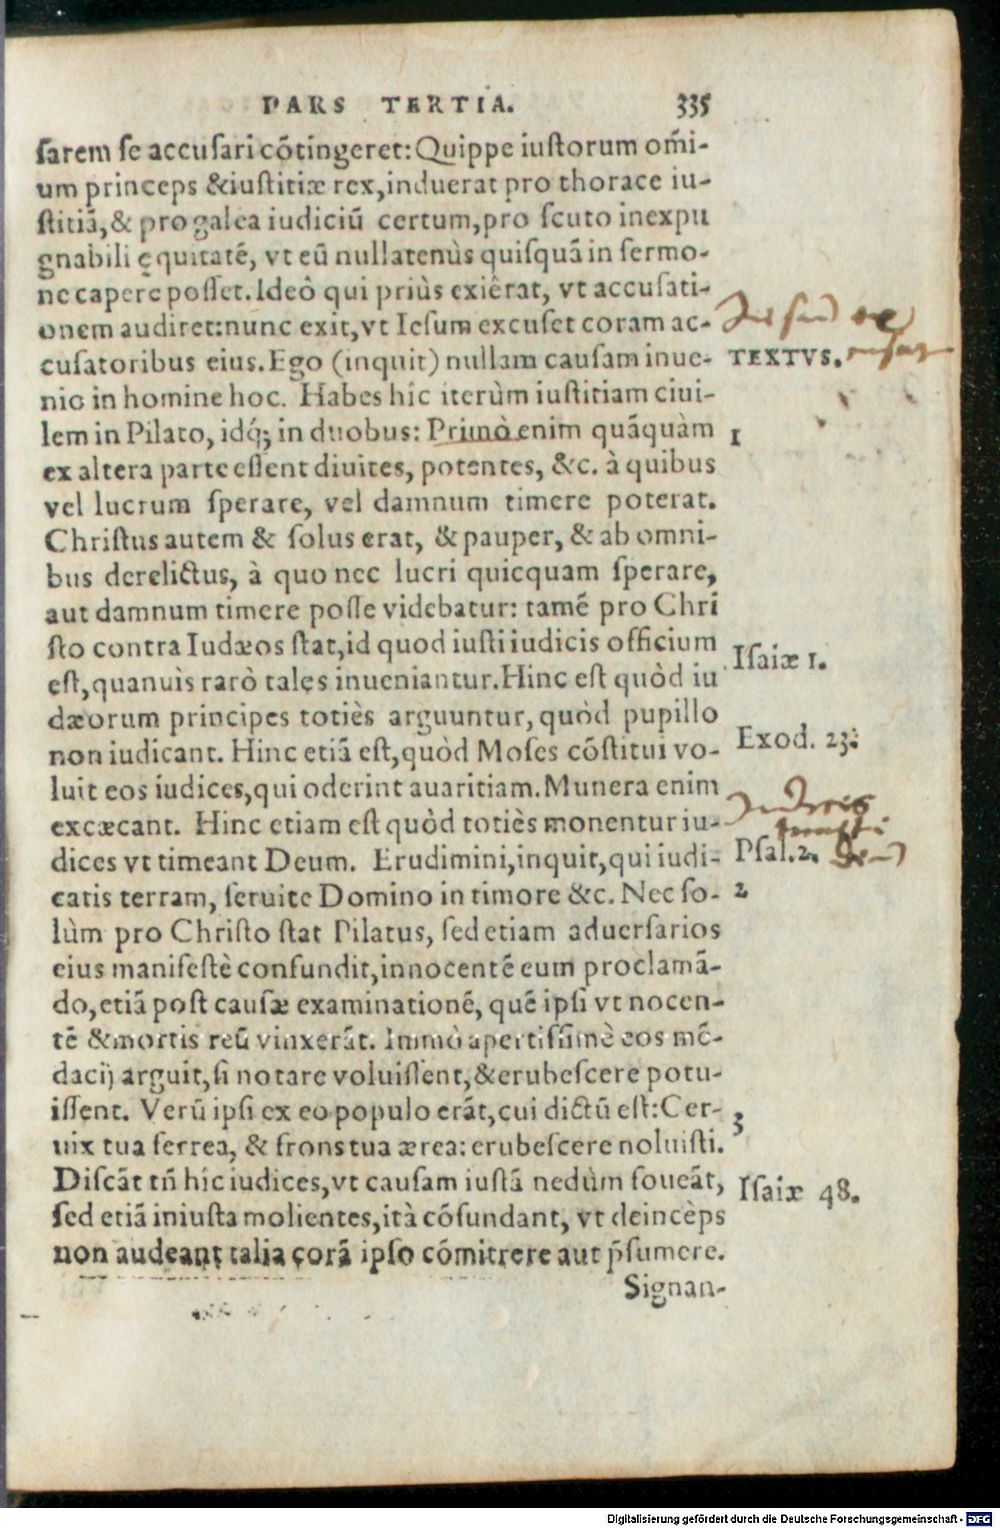 PARS TERTIA. 335
sarem se accusari cõtingeret: Quippe iustorum om̃i-
um princeps & iustitiæ rex, induerat pro thorace iu-
stitiã, & pro galea iudiciũ certum, pro scuto inexpu
gnabili ęquitatẽ, vt eũ nullatenùs quisquã in sermo-
ne capere posset. Ideò qui priùs exiêrat, vt accusati-
onem audiret: nunc exit, vt Iesum excuset coram ac-
cusatoribus eius. Ego (inquit) nullam causam inue- TEXTVS.
nio in homine hoc. Habes hîc iterùm iustitiam ciui-
lem in Pilato, idq́; in duobus: Primò enim quãquàm 1
ex altera parte essent diuites, potentes, &c. à quibus
vel lucrum sperare, vel damnum timere poterat.
Christus autem & solus erat, & pauper, & ab omni-
bus derelictus, à quo nec lucri quicquam sperare,
aut damnum timere posse videbatur: tamẽ pro Chri
sto contra Iudæos stat, id quod iusti iudicis officium
est, quanuis rarò tales inueniantur. Hinc est quòd iu Isaiæ 1.
dæorum principes totiès arguuntur, quòd pupillo
non iudicant. Hinc etiã est, quòd Moses cõstitui vo- Exod. 23.
luit eos iudices, qui oderint auaritiam. Munera enim
excæcant. Hinc etiam est quòd totiès monentur iu-
dices vt timeant Deum. Erudimini, inquit, qui iudi- Psal. 2.
catis terram, seruite Domino in timore &c. Nec so- 2
lùm pro Christo stat Pilatus, sed etiam aduersarios
eius manifestè confundit, innocentẽ eum proclamã-
do, etiã post causæ examinationẽ, quẽ ipsi vt nocen-
tẽ & mortis reũ vinxerãt. Immò apertissimè eos mẽ-
dacij arguit, si notare voluissent, & erubescere potu-
issent. Verũ ipsi ex eo populo erãt, cui dictũ est: Cer- 3
uix tua ferrea, & frons tua ærea: erubescere noluisti.
Discãt tñ hîc iudices, vt causam iustã nedùm foueãt, Isaiæ 48.
sed etiã iniusta molientes, ità cõfundant, vt deincèps
non audeant talia corã ipso cõmittere aut p̃sumere.
Signan-
Digitalisierung gefördert durch die Deutsche Forschungsgemeinschaft - DFG